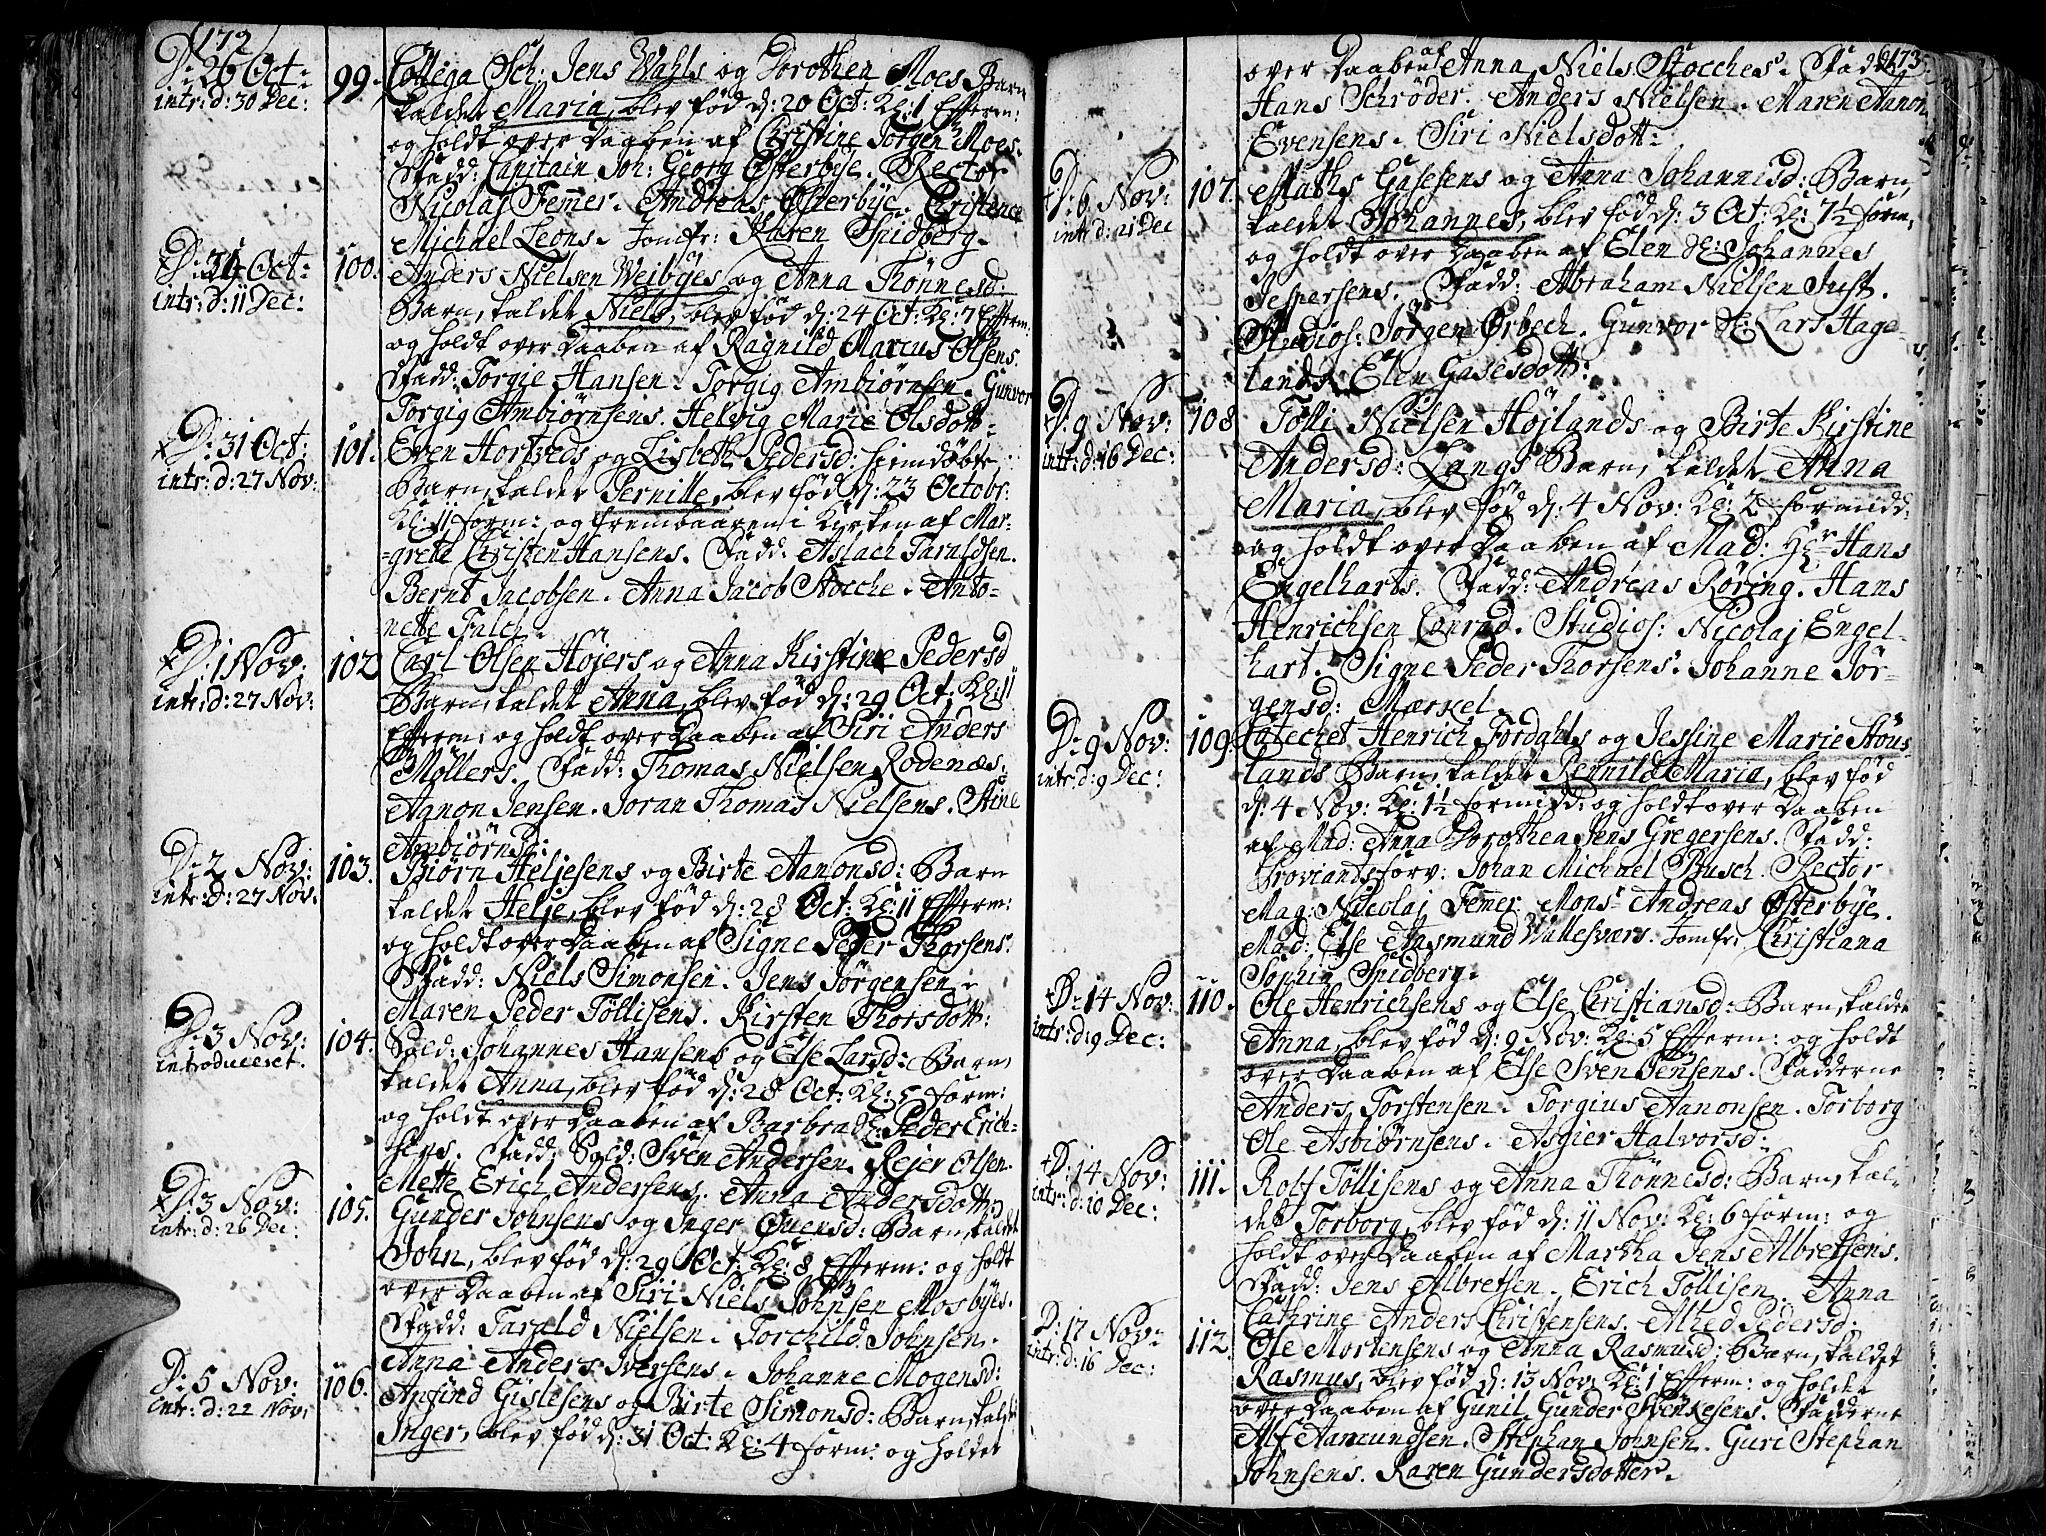 172
D: 26 Oct:
intr: d: 30 Dec:
99. Collega Sch: Jens Wahls og Dorothea Moes Barn
kaldet Maria, blev fød d: 20 Oct: Kl: 1 Efterm:
og holdt over Daaben af Christine Jørgen Moes.
Fadd: Capitain Joh: Georg Østerbye. Rector
Nicolaj Femer. Andreas Østerbye. Cristence
Michael Leons. Jomfr: Karen Spidberg.
D: 31 Oct:
intr: d: 11 Dec:
100. Anders Nielsen Weibyes og Anna Thønnesd:
Barn, kaldet Niels, blev fød d: 24 Oct: Kl: 7 Efterm:
og holdt over Daaben af Ragnild Marcus Olsens.
Fadd: Torgie Hansen. Torgig Ambiørnsen. Gunvor
Torgig Ambiørnsens. Helvig Marie Olsdott:
D: 31 Oct:
intr: d: 27 Nov:
101. Even Hortveds og Lisbeth Pedersd: hiemdøbte
Barn, kaldet Pernille, blev fød d: 23 Octobr:
Kl: 11 form: og frembaaren i Kirken af Mar-
grete Christen Hansens. Fadd: Aslach Taraldsen.
Bernt Jacobsen. Anna Jacob Stocche. Anto-
nette Falch.
D: 1 Nov:
intr: d: 27 Nov:
102 Carl Olsen Højers og Anna Kirstine Pedersd
Barn, kaldet Anna, blev fød d: 29 Oct: Kl: 11
Efterm: og holdt over Daaben af Siri Anders
Møllers. Fadd: Thomas Nielsen Rodenæs.
Aanon Jensen. Joran Thomas Nielsens. Stine
Ambiørnsd:
D: 2 Nov:
intr: d: 27 Nov.
103. Biørn Heljesens og Birte Aanonsd: Barn
kaldet Helje, blev fød d: 28 Oct: Kl: 11 Efterm:
og holdt over Daaben af Signe Peder Thorsens.
Fadd: Niels Simonsen. Jens Jørgensen.
Maren Peder Tøllisens. Kirsten Thorsdott:
D: 3 Nov:
introduceret.
104. Sold: Johannes Hansens og Else Larsd: Barn,
kaldet Anna, blev fød d: 28 Oct: Kl: 5 form:
og holdt over Daaben af Barbra Peder Erich-
sens. Fadd: Sold: Sven Andersen. Rejer Olsen.
Mette Erich Andersens. Anna Andersdotter
D: 3 Nov:
intr: d: 26 Dec:
105. Gunder Johnsens og Inger Ouensd: Barn, kaldet
John, blev fød d: 29 Oct: Kl: 8 Efterm: og holdt
over Daaben af Siri Niels Johnsen Mosbyes.
Fadd: Tarald Nielsen. Torchild Johnsen.
Anna Anders Iversens. Johanne Mogensd:
D: 5 Nov:
intr: d: 22 Nov:
106. Anfind Gislesens og Birte Simonsd: Barn, kaldet
Inger, blev fød d: 31 Oct: Kl: 4 form: og holdet
173
over Daaben af Anna Niels Stocches. Fadd:
Hans Schrøder. Anders Nielsen. Maren Aanon
Evensens. Siri Nielsdott:
D: 6 Nov:
intr: d: 21 Dec
107. Maths Gasesens og Anna Johannesd: Barn,
kaldet Johannes, blev fød d: 3 Oct: Kl: 7½ form,
og holdt over Daaben af Elen Johannes
Jespersens. Fadd: Abraham Nielsen Just.
Studios: Jørgen Ørbech. Gunvor Lars Hage-
lands. Elen Gasesdott:
D: 9 Nov:
intr: d: 16 Dec:
108 Tølli Nielsen Højlands og Birte Kirstine
Andersd: Langs Barn, kaldet Anna
Maria, blev fød d: 4 Nov: Kl: 2 formidd:
og holdt over Daaben af Mad: Hr Hans
Engelharts. Fadd: Andreas Røring. Hans
Henrichsen Conrad. Studios: Nicolaj Engel-
hart. Signe Peder Thorsens. Johanne Jør-
gensd: Mærkel.
D: 9 Nov:
intr: d: 9 Dec:
109. Catechet Henrich Fordahls og Jessine Marie Støus-
lands Barn, kaldet Rennild Maria, blev fød
d: 4 Nov: Kl: 1½ formidd: og holdt over Daaben
af Mad: Anna Dorothea Jens Gregersens. Fadd:
Proviandsforv: Johan Michael Stusch. Rector
Mag: Nicolaj Femer. Monsr Andreas Østerbye.
Mad: Else Aasmund Wallesværs. Jomfr: Christiana
Sophia Spidberg.
D: 14 Nov:
intr: d: 9 Dec:
110. Ole Henrichsens og Else Christiansd: Barn, kaldet
Anna, blev fød d: 9 Nov: Kl: 5 Efterm: og holdt
over Daaben af Else Sven Jensens. Fadderne
Anders Torstensen. Torgius Aanonsen. Torborg
Ole Asbiørnsens. Asgier Halvorsd:
D: 14 Nov:
intr: d: 10 Dec:
111. Rolf Tøllisens og Anna Thønnesd: Barn, kal-
det Torborg, blev fød d: 11 Nov: Kl: 6 form: og
holdt over Daaben af Martha Jens Albretsens.
Fadd: Jens Albretsen. Erich Tøllisen. Anna
Cathrine Anders Christensens. Alhed Pedersd:
D: 17 Nov:
intr: d: 16 Dec:
112. Ole Mortensens og Anna Rasmusd: Barn, kaldet
Rasmus, blev fød d: 13 Nov: Kl: 1 Efterm: og holdet
over Daaben af Gunil Gunder Svenkesens. Fadderne
Alf Aamundsen. Stephan Johnsen. Guri Stephan
Johnsens. Karen Gundersdotter.